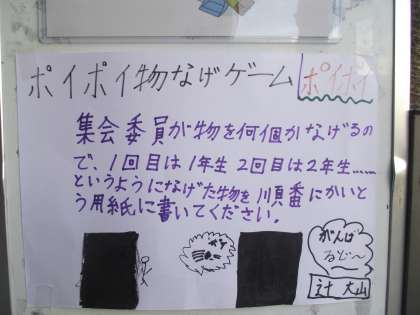 ポイポイ物なげゲーム
ポイポイ
集会委員が物を何個かなげるの
で、1回目は1年生 2回目は2年生……
というようになげた物を順番にかいと
う用紙に書いてください。
がんば
るぞ〜
辻 大山